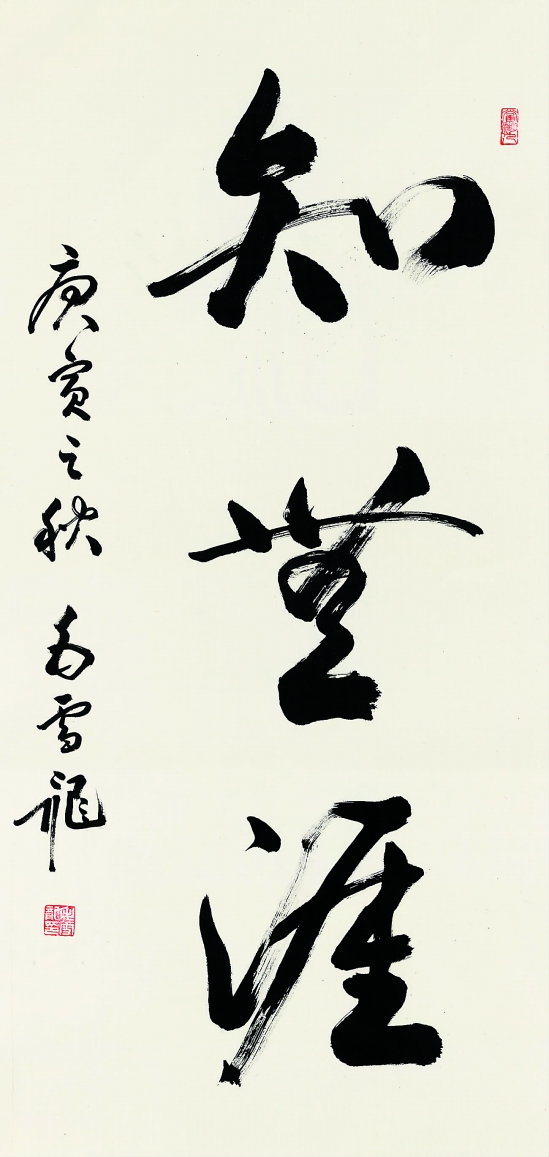 知無涯
庚寅之秋 雪龍